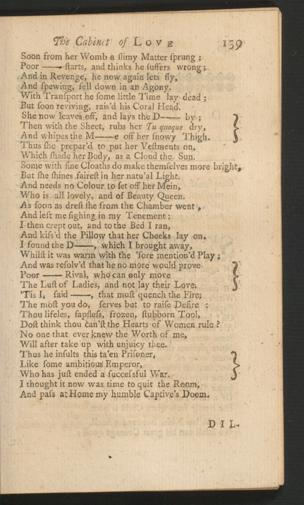 The Cabinet of LOVE 159
Soon from her Womb a slimy Matter sprung;
Poor —— starts, and thinks he suffers wrong;
And in Revenge, he now again lets fly,
And spewing, fell down in an Agony.
With Transport he some little Time lay dead;
But soon reviving, rais'd his Coral Head.
She now leaves off, and lays the D—— by;
Then with the Sheet, rubs her Tu quoque dry,
And whipes the M——e off her snowy Thigh.
Thus she prepar'd to put her Vestments on,
Which shade her Body, as a Cloud the Sun.
Some with fine Cloaths do make themselves more bright,
But she shines fairest in her natu'al Light.
And needs no Colour to set off her Mein,
Who is all lovely, and of Beauty Queen.
As soon as drest she from the Chamber went,
And left me sighing in my Tenement:
I then crept out, and to the Bed I ran,
And kiss'd the Pillow that her Cheeks lay on.
I found the D——, which I brought away,
Whilst it was warm with the 'fore mention'd Play;
And was resolv'd that he no more would prove
Poor —— Rival, who can only move
The Lust of Ladies, and not lay their Love.
'Tis I, said ——, that must quench the Fire;
The most you do, serves but to raise Desire:
Thou lifeless, sapless, frozen, stubborn Tool,
Dost think thou can'st the Hearts of Women rule?
No one that ever knew the Worth of me,
Will after take up with unjuicy thee.
Thus he insults this ta'en Prisoner,
Like some ambitious Emperor,
Who has just ended a successful War.
I thought it now was time to quit the Room,
And pass at Home my humble Captive's Doom.
DIL-